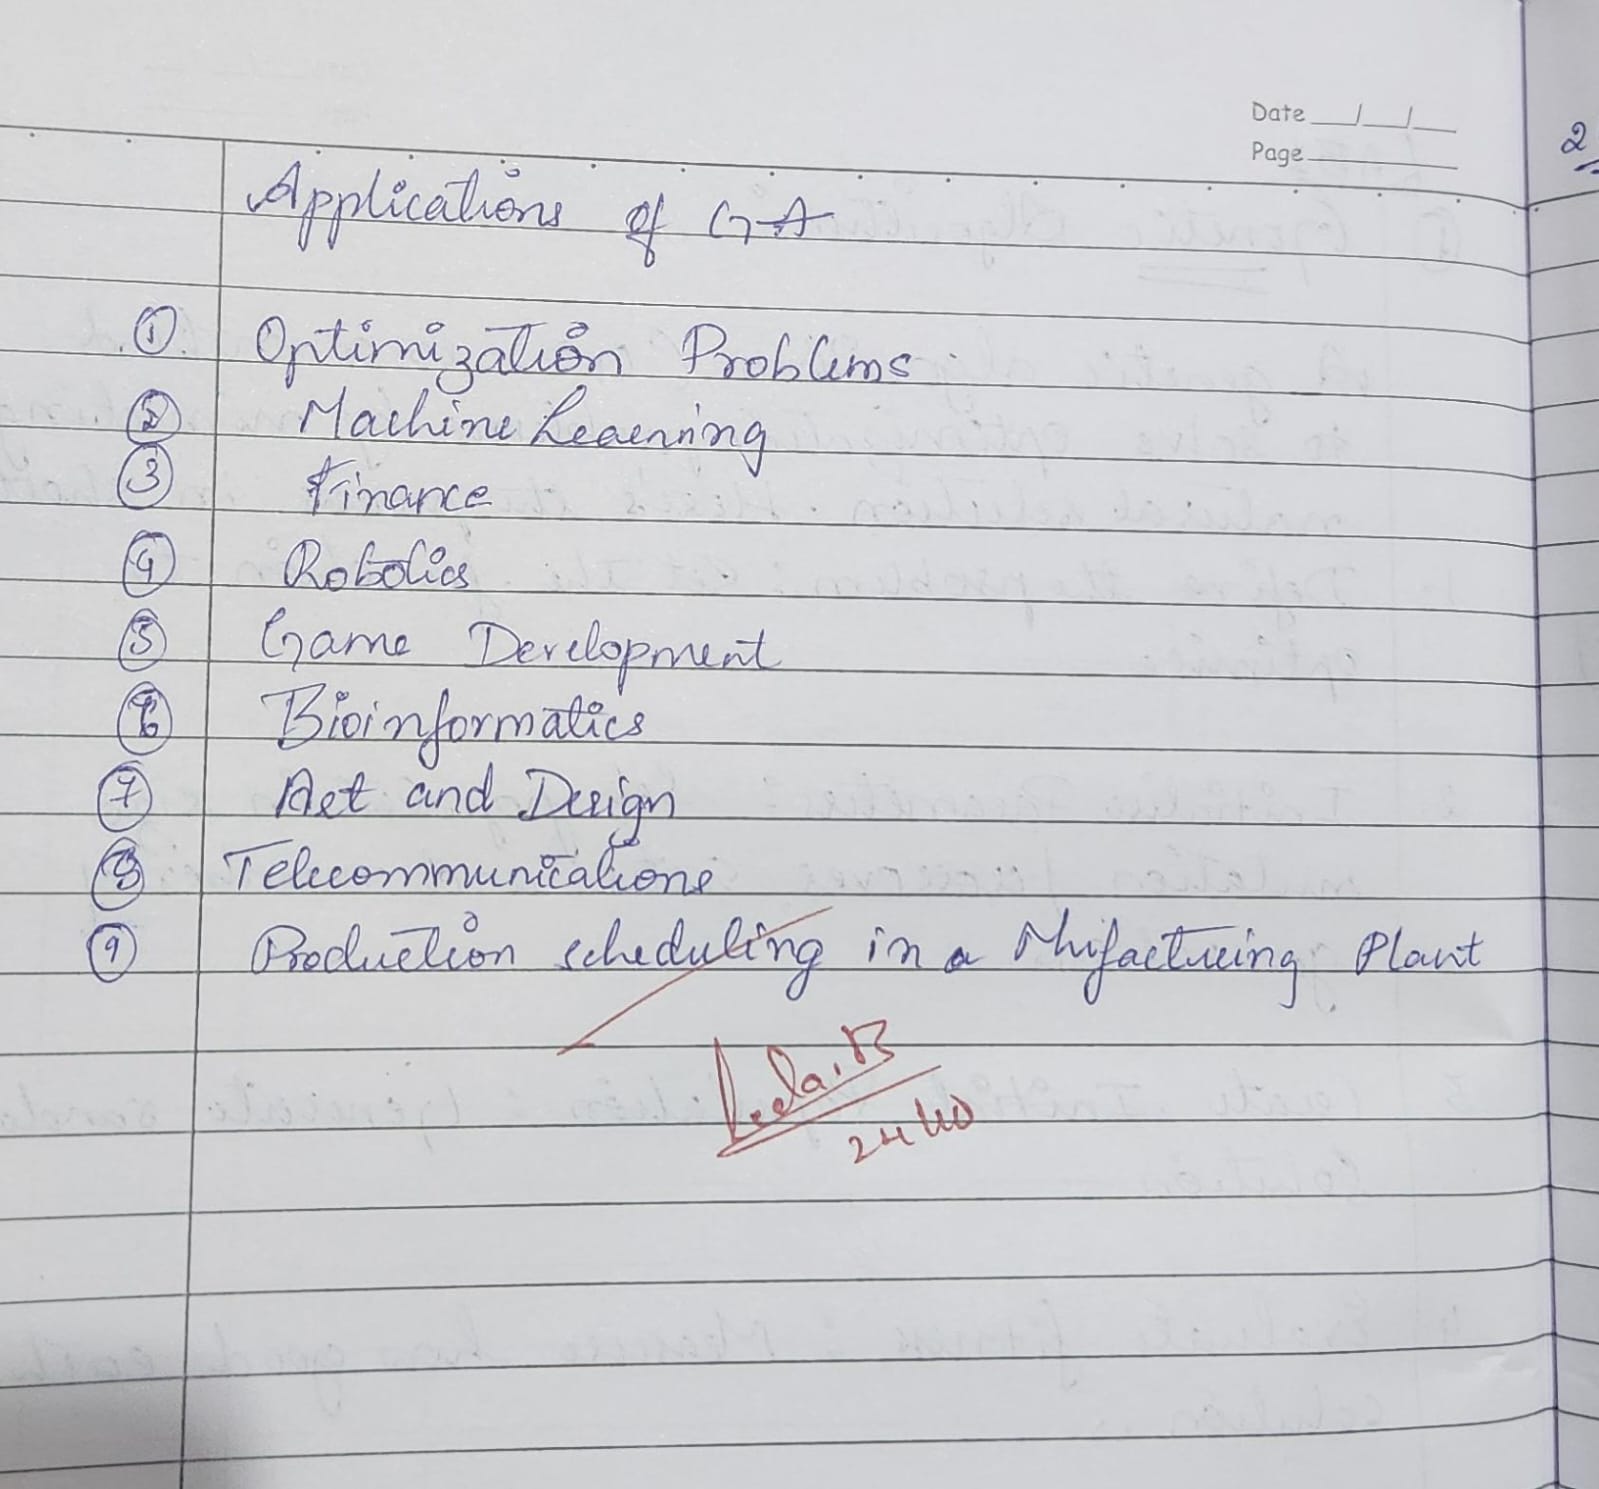 Date __/__/__
Page
2
Applications of GA
① Optimization Problems
② Machine Learning
③ Finance
④ Robotics
⑤ Game Development
⑥ Bioinformatics
⑦ Art and Design
⑧ Telecommunications
⑨ Production scheduling in a Mnifactureing Plant
Leela.B